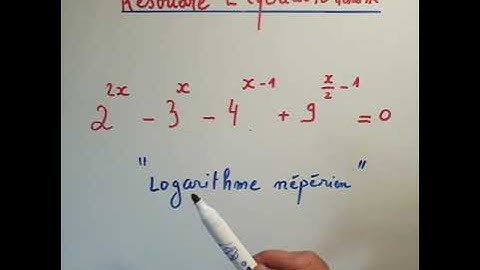 Résoudre l'équation
2^{2x} - 3^{x} - 4^{x-1} + 9^{\frac{x}{2}-1} = 0
"Logarithme népérien"